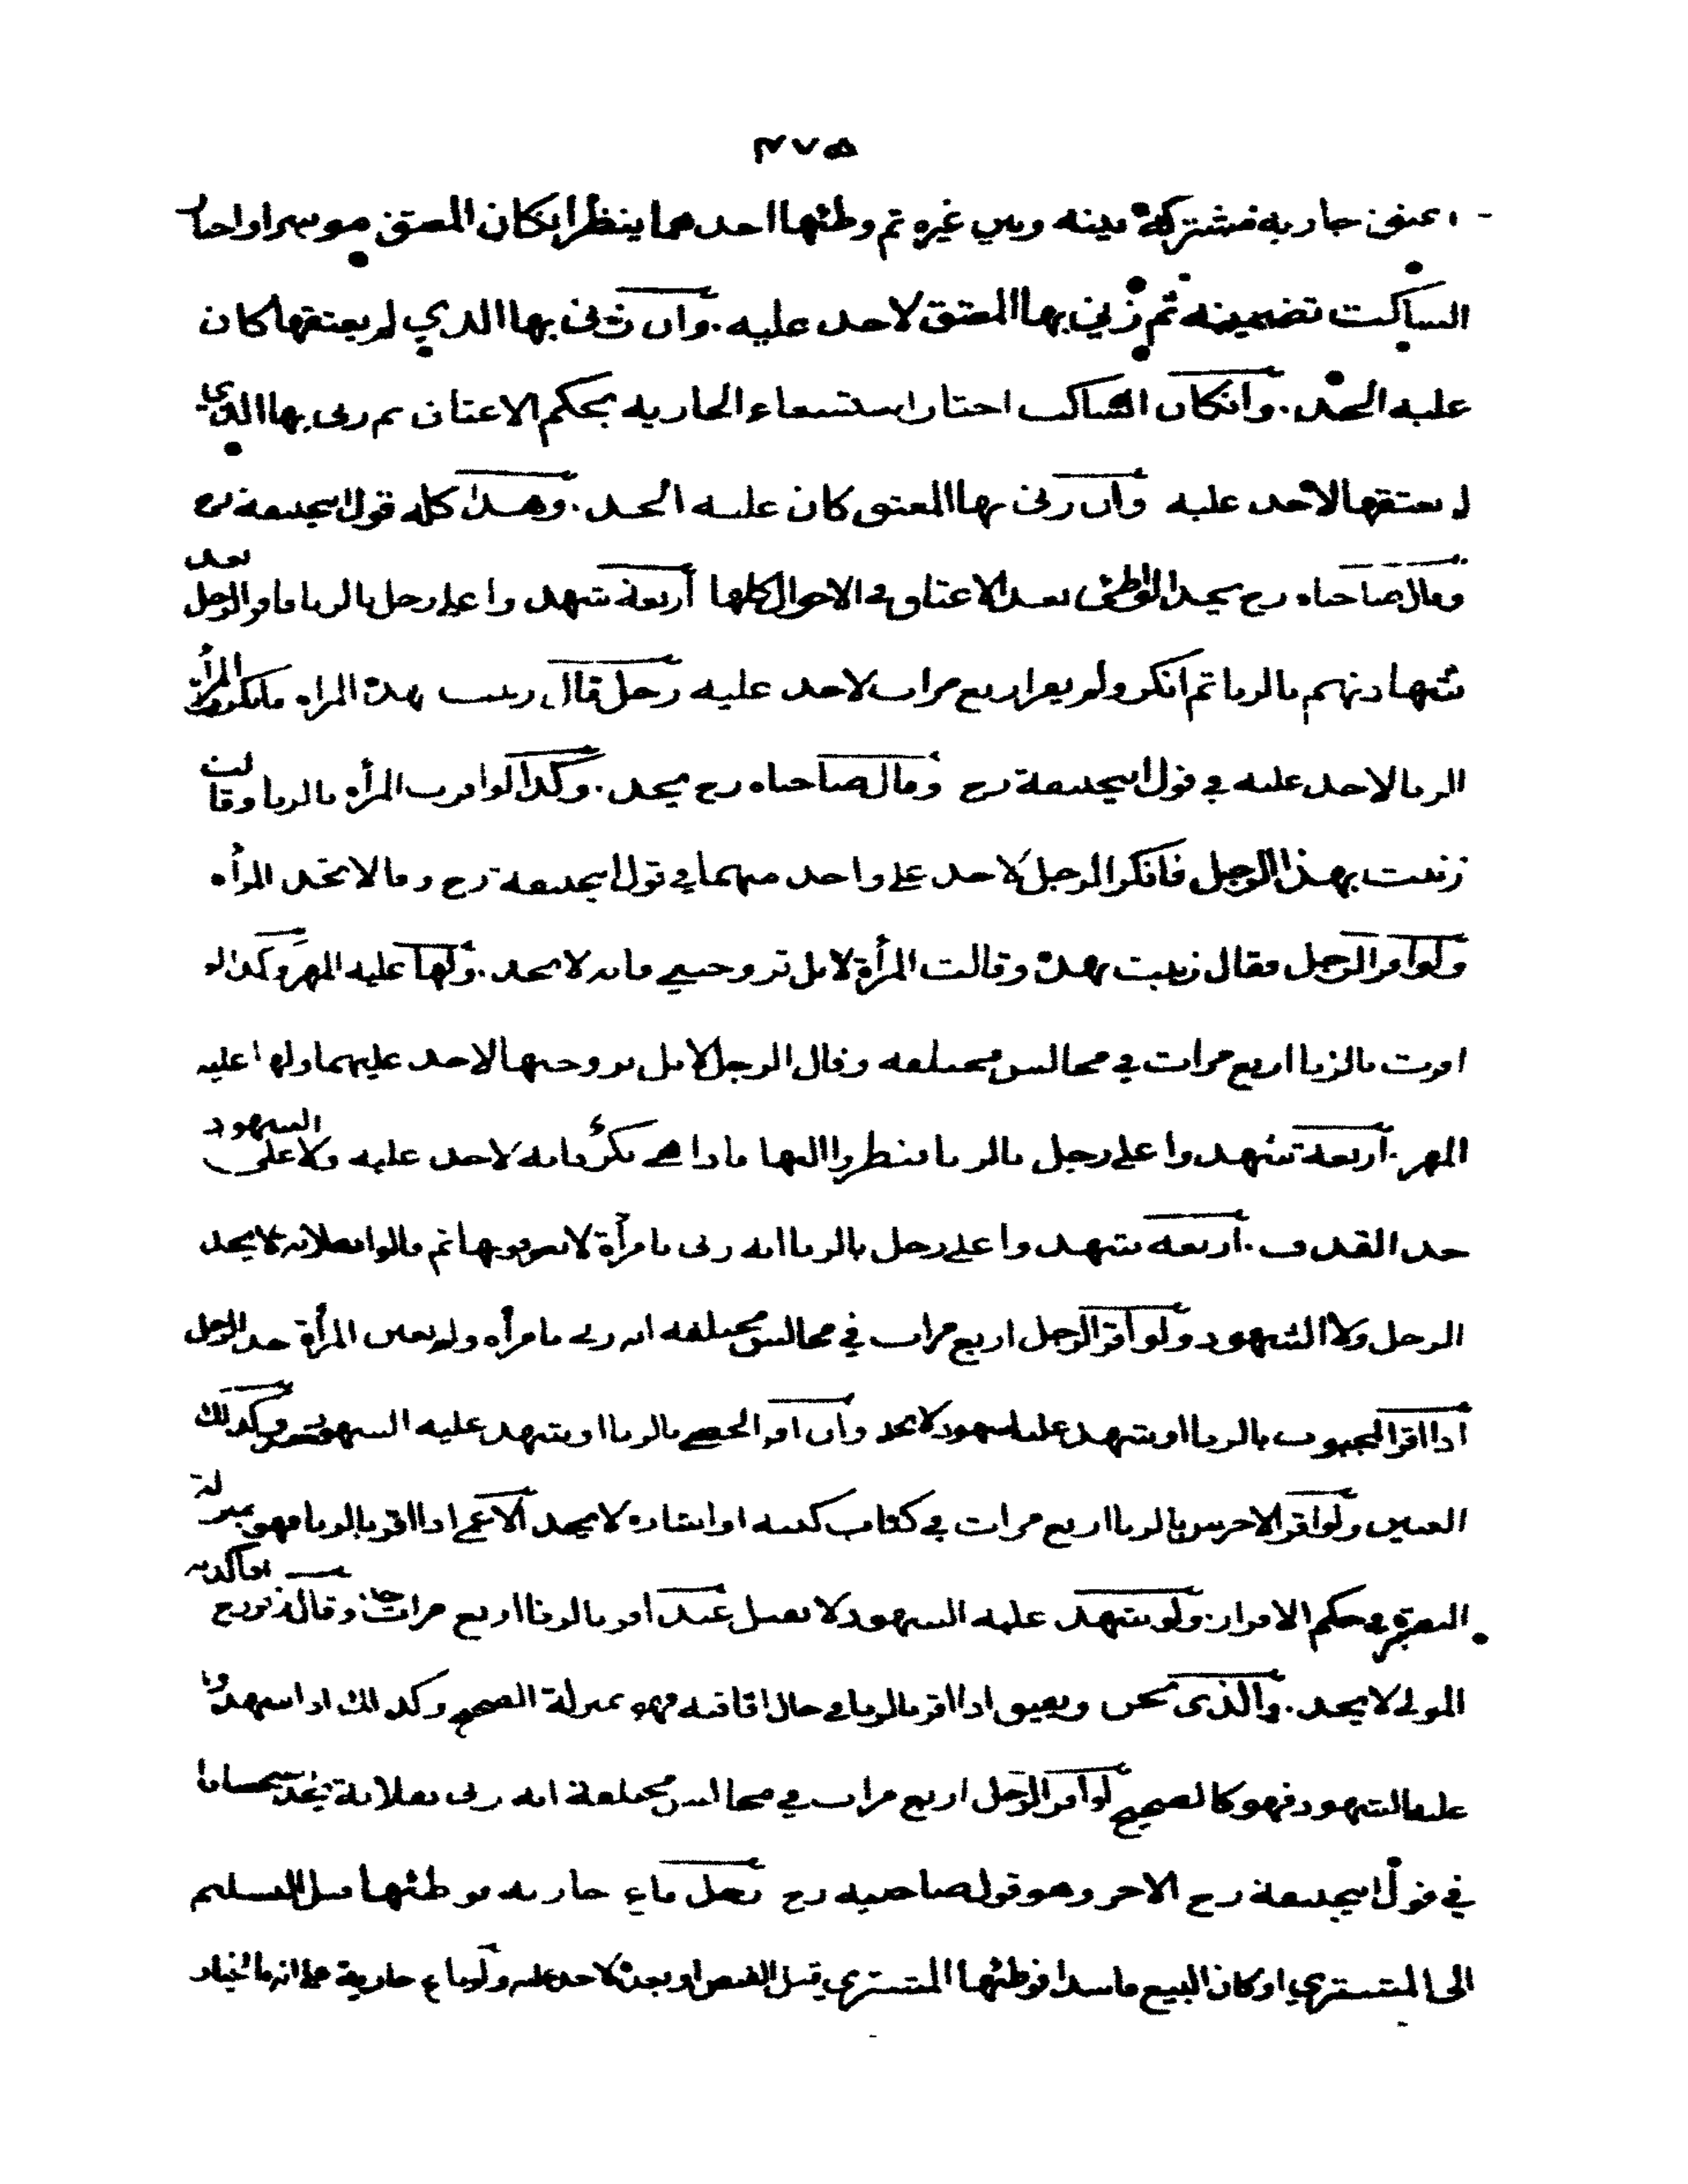 ٤٧٥
اعتق جارية مشتركة بينه وبين غيره ثم وطئها احدهما ينظر انكان المعتق موسرا واختار
الساكت تضمينه ثم زني بها المعتق لاحد عليه . وان زنى بها الذي لم يعتقها كان
عليه الحد . وانكان الساكت اختار استسعاء الجارية بحكم الاعتاق ثم زنى بها الذي
لم يعتقها لاحد عليه وان زنى بها المعتق كان عليه الحد . وهذا كله قول ابيحنيفة رح
وقال صاحباه رح يحد الواطئ بعد الاعتاق في الاحوال كلها أربعة شهدوا على رجل بالزنا فاقر الرجل بعد
شهادتهم بالزنا ثم انكر ولم يقر اربع مرات لاحد عليه رجل قال زنيت بهذه المرأه فانكرت المرأة
الزنا لاحد عليه في قول ابيحنيفة رح وقال صاحباه رح يحد . وكذا لو اقرت المرأه بالزنا وقالت
زنيت بهذا الرجل فانكر الرجل لاحد على واحد منهما في قول ابيحنيفة رح وقالا تحد المرأه
ولو اقر الرجل فقال زنيت بهذه وقالت المرأة لا بل تزوجني فانه لا يحد . ولها عليه المهر وكذا لو
اقرت بالزنا اربع مرات في مجالس مختلفه وقال الرجل لا بل تزوجتها لاحد عليهما ولها عليه
المهر . أربعة شهدوا على رجل بالزنا فنظروا اليها فاذا هي بكر فانه لاحد عليه ولا على الشهود
حد القذف . أربعه شهدوا على رجل بالزنا انه زنى بامرأة لا نعرفوها ثم قالوا بفلانة لا يحد
الرجل ولا الشهود ولو أقر الرجل اربع مرات في مجالس مختلفه انه زنى بامرأه ولم يعين المرأة حد الرجل
اذا اقر المجبوب بالزنا او شهد عليه الشهود لا يحد وان اقر الخصي بالزنا او شهد عليه الشهود حد وكذلك
العنين ولو اقر الاخرس بالزنا اربع مرات في كتاب كتبه او اشاره لا يحد الاعمى اذا اقر بالزنا فهو بمنزلة
البصير في حكم الاقرار . ولو شهد عليه الشهود لا تقبل عبد اقر بالزنا اربع مرات حد وقال زفر رح
المولى لا يحد . والذى يجن ويفيق اذا اقر بالزنا في حال افاقته فهو بمنزلة الصحيح وكذلك اذا شهدوا
عليه الشهود فهو كالصحيح لو اقر الرجل اربع مرات في مجالس مختلفة انه زنى بفلانة يحد استحسانا
في قول ابيحنيفة رح الاخر وهو قول صاحبيه رح رجل باع جارية فوطئها قبل التسليم
الى المشتري او كان البيع فاسدا فوطئها المشتري قبل القبض او بعده لاحد عليه ولو باع جارية على انه بالخيار